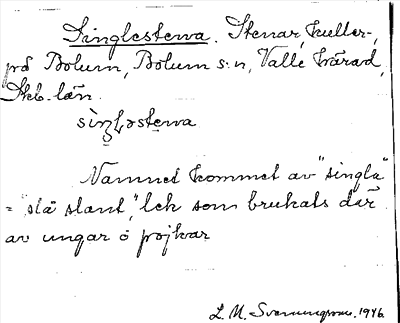 Singlestena. Stenar, kuller-,
på Bolum, Bolum s:n, Valle härad,
Skb. län.
Namnet kommet av "singla"
= "slå slant", lek som brukats där
av ungar o pojkar
L. M. Svenungsson. 1946.